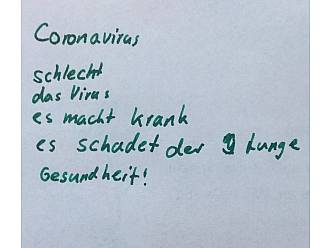 Coronavirus
schlecht
das Virus
es macht krank
es schadet der Lunge
Gesundheit!